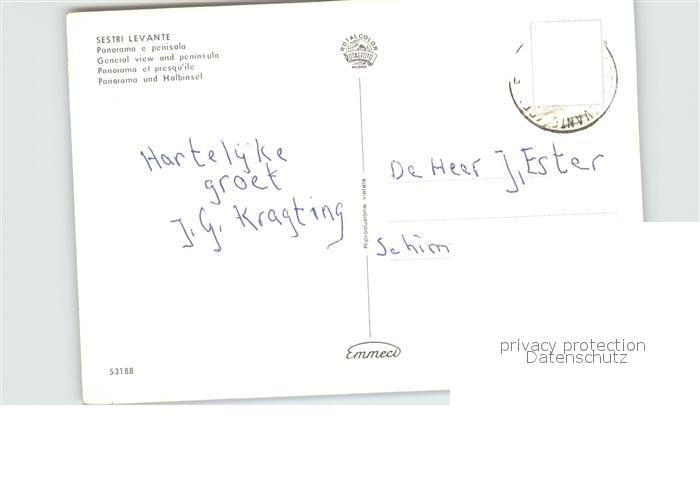 SESTRI LEVANTE
Panorama e penisola
General view and peninsula
Panorama et presqu'ile
Panorama und Halbinsel
ROTALCOLOR
ROTALFOTO
MILANO
Hartelijke
groet
J.G. Kragting
De Heer J. Ester
Schim
Riproduzione vietata
Emmeci
53188
privacy protection
Datenschutz